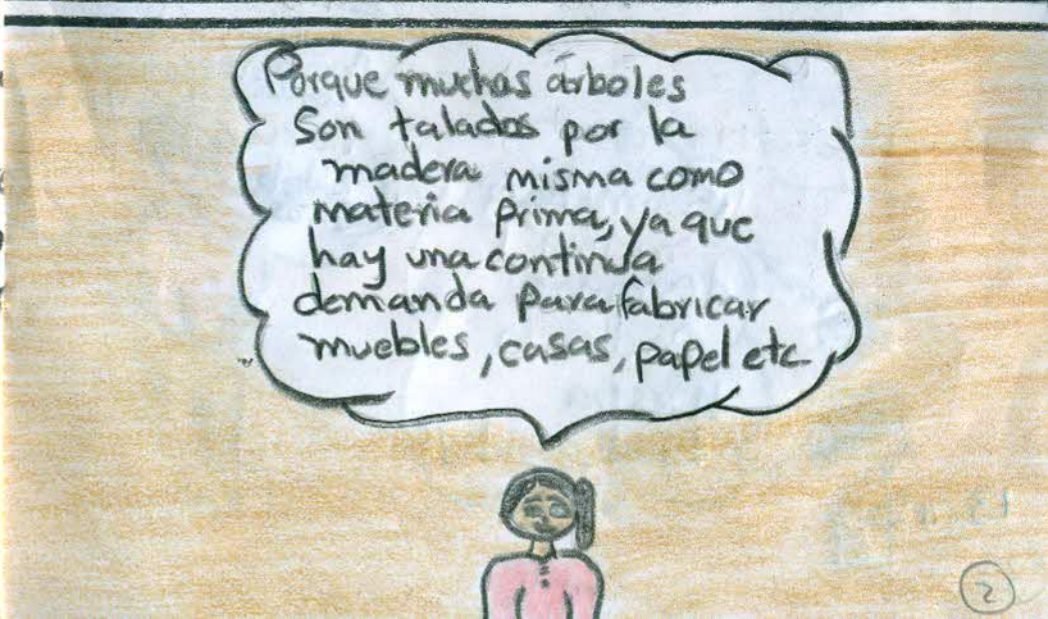 Porque muchas árboles
Son talados por la
madera misma como
materia prima, ya que
hay una continúa
demanda para fabricar
muebles, casas, papel etc
2